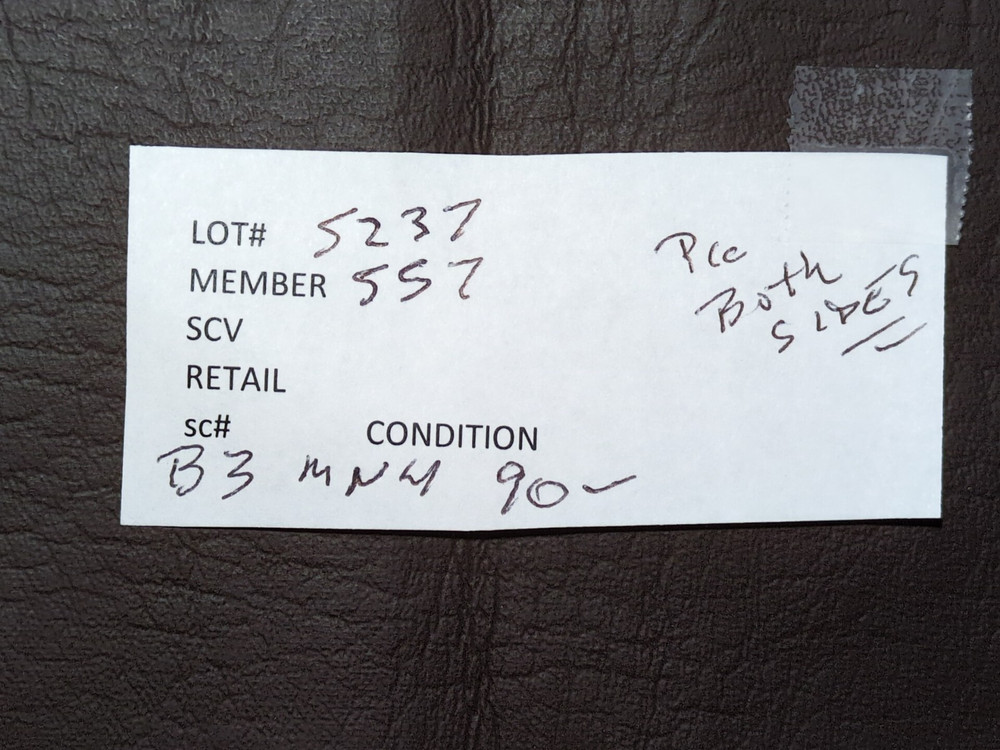 LOT# 5237
MEMBER 557
SCV
RETAIL
sc# CONDITION
B3 MNH 90-
Pic
Both
SIDES